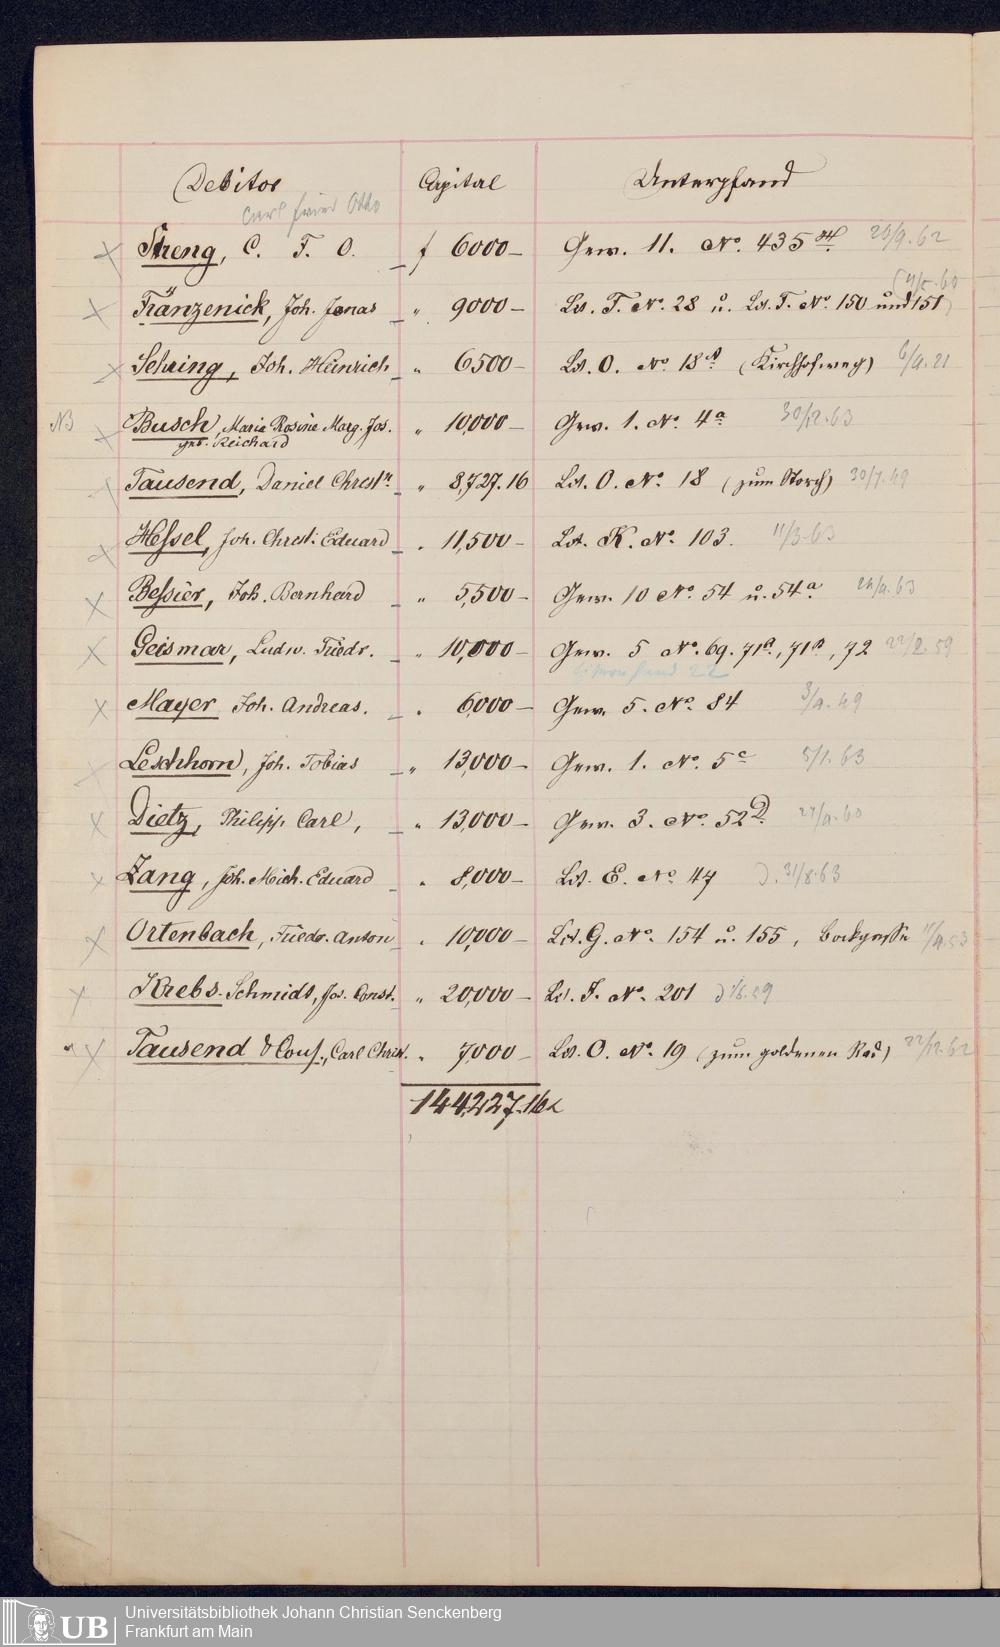 Debitor Capital Unterpfand
Carl Fried Otto
Streng, C. F. O. f 6000 – Gew. 11. No. 435 23/9.62
Fränzenick, Joh. Jonas „ 9000 – Lit. F. No. 28 u. Lit. F. No. 150 und 151
Sehring, Joh. Heinrich „ 6500 – Lit. O. No. 18 (Kirchhofweg) 6/9.21
NB Busch, Marie Rosine Marg. Jos. „ 10,000 – Gew. 1. No. 4a 30/12.63
geb. Reichard
Tausend, Daniel Christn. „ 8,727.16 Lit. O. No. 18 (zum Storch) 30/7.49
Hessel, Joh. Christ. Eduard „ 11,500 – Lit. K. No. 103. 11/3.63
Bessier, Joh. Bernhard „ 5,500 – Gew. 10 No. 54 u. 54a
Geismar, Ludw. Friedr. „ 10,000 – Gew. 5 No. 69. 71a, 71b, 72 22/2.59
22
Mayer Joh. Andreas. „ 6,000 – Gew. 5. No. 84 3/9.49
Leschhorn, Joh. Tobias „ 13,000 – Gew. 1. No. 5c 5/1.63
Dietz, Philipp Carl, „ 13,000 – Gew. 3. No. 52D. 27/9.60
Zang, Joh. Mich. Eduard „ 8,000 – Lit. E. No. 47 d. 31/8.63
Ortenbach, Friedr. Anton „ 10,000 – Lit. G. No. 154 u. 155, Bockgasse
Krebs-Schmidt, Jos. Const. „ 20,000 – Lit. J. No. 201
Tausend & Cons., Carl Christ. „ 7,000 – Lit. O. No. 19 (zum goldenen Rad) 22/12.62
144,227.16x
UB
Universitätsbibliothek Johann Christian Senckenberg
Frankfurt am Main